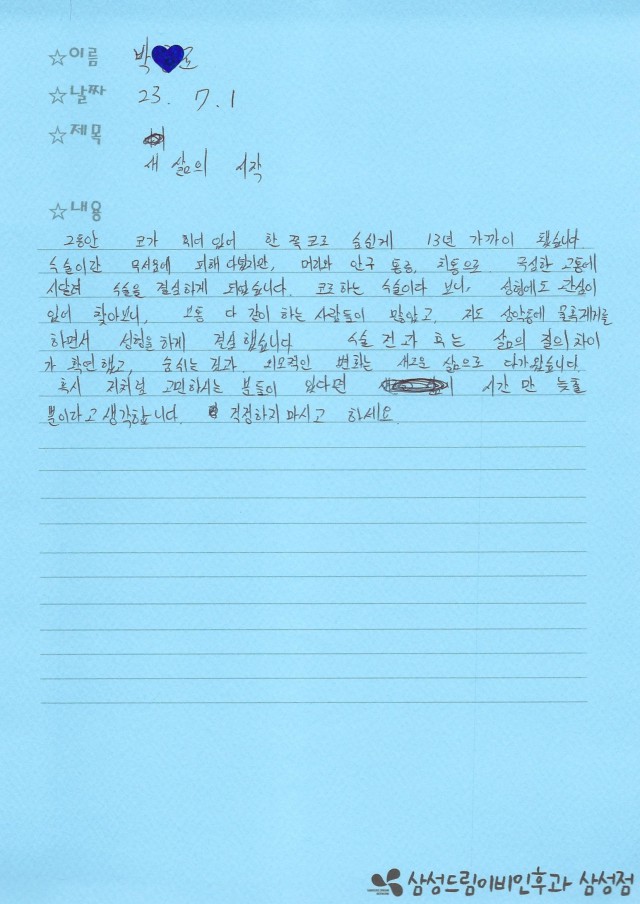 ☆이름 박♥료
☆날짜 23. 7. 1
☆제목
새 삶의 시작
☆내용
그동안 코가 휘어 있어 한 쪽 코로 숨쉰게 13년 가까이 됐습니다
수술이란 무서움에 피해 다녔지만, 머리와 안구 통증, 치통으로 극심한 고통에
시달려 수술을 결심하게 되었습니다. 코로 하는 수술이다 보니, 성형에도 관심이
있어 찾아보니, 보통 다 같이 하는 사람들이 많았고, 저도 상악동에 물혹제거를
하면서 성형을 하게 결심 했습니다 수술 전 과 후 는 삶의 질의 차이
가 확연했고, 숨쉬는 길과 외모적인 변화는 새로운 삶으로 다가왔습니다.
혹시 저처럼 고민하시는 분들이 있다면 시간 만 늦출
뿐이라고 생각합니다. 걱정하지 마시고 하세요.
삼성드림이비인후과 삼성점